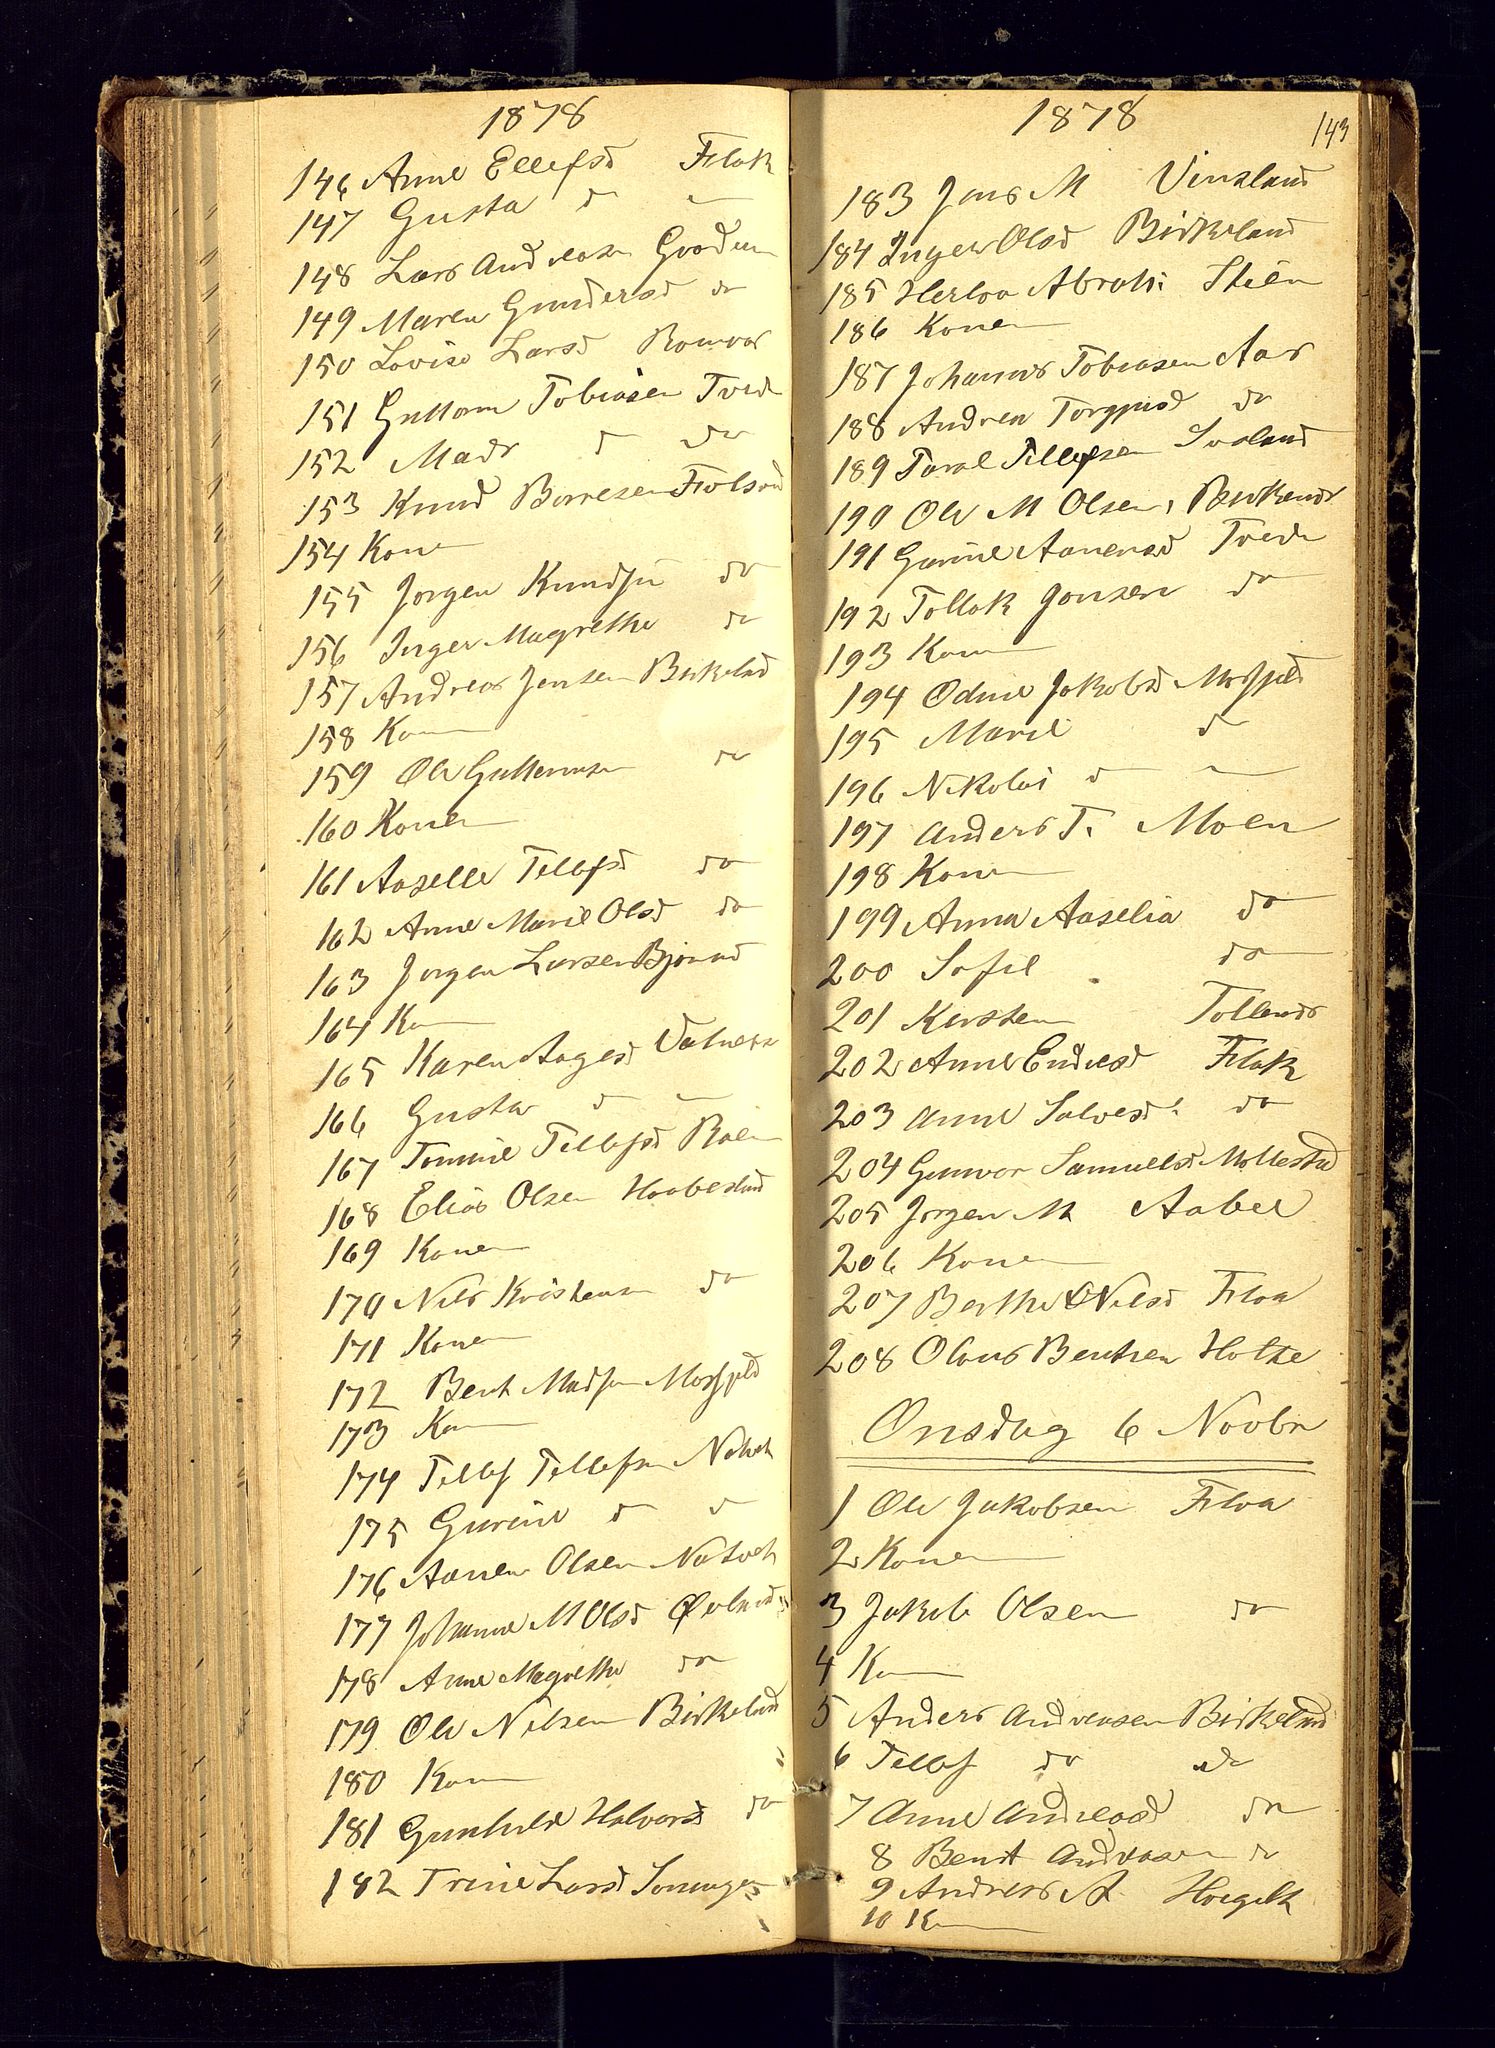 1878
146 Anne Ellefsd Flak
147 Gusta do —
148 Lars Andreasen Grodum
149 Maren Gundersd do
150 Lovise Larsd Romvor
151 Guttorm Tobiasen Tvede
152 Mads do do
153 Knud Borresen
154 Kone
155 Jorgen Knudsen do
156 Inger Magrethe do
157 Andreas Jensen Birkeland
158 Kone
159 Ole Guttormsen do
160 Konen
161 Aaselle Tellefsd do
162 Anne Marie Olsd do
163 Jorgen Larsen
164 Kone
165 Karen Aagesd Vatnet
166 Gusta do —
167 Tomine Tellefsd Roien
168 Elias Olsen Haabesland
169 Konen
170 Nils Kristensen do
171 Konen
172 Bent Madsen Mosfjeld
173 Kone
174 Tellef Tellefsen Natvet
175 Gurine do do
176 Aanen Olsen Natvet
177 Johanne M Olsd
178 Anne Magrethe do
179 Ole Nilsen Birkeland
180 Kone
181 Gunhild Halvorsd do
182 Trine Larsd
1878 143
183 Jens M Vinsland
184 Inger Olsd Birkeland
185 Herlov Abrah: Steen
186 Konen
187 Johannes Tobiasen Aas
188 Andrea Torgjusd do
189 Taral Tellefsen
190 Ole M Olsen, Birkenes
191 Gurine Aanensd Tvede
192 Tollak Jonsen do
193 Kone
194 Odine Jakobsd Mosfjeld
195 Marie do
196 Nikolai do —
197 Anders T. Moen
198 Kone
199 Anna Aaselia do
200 Sofie do
201 Kirsten Tollands
202 Anne Endresd Flak
203 Anne Salvesd do
204 Gunvor Samuelsd Mollestad
205 Jorgen M Aabel
206 Konen
207 Berthe Nilsd Floa
208 Olaus Bentsen Holte
Onsdag 6 Novbr
1 Ole Jakobsen Floa
2 Konen
3 Jakob Olsen do
4 Kone
5 Anders Andreasen Birkeland
6 Tellef do do
7 Anne Andreasd do
8 Bent Andreasen do
9 Andreas A Hoegelt
10 Kone